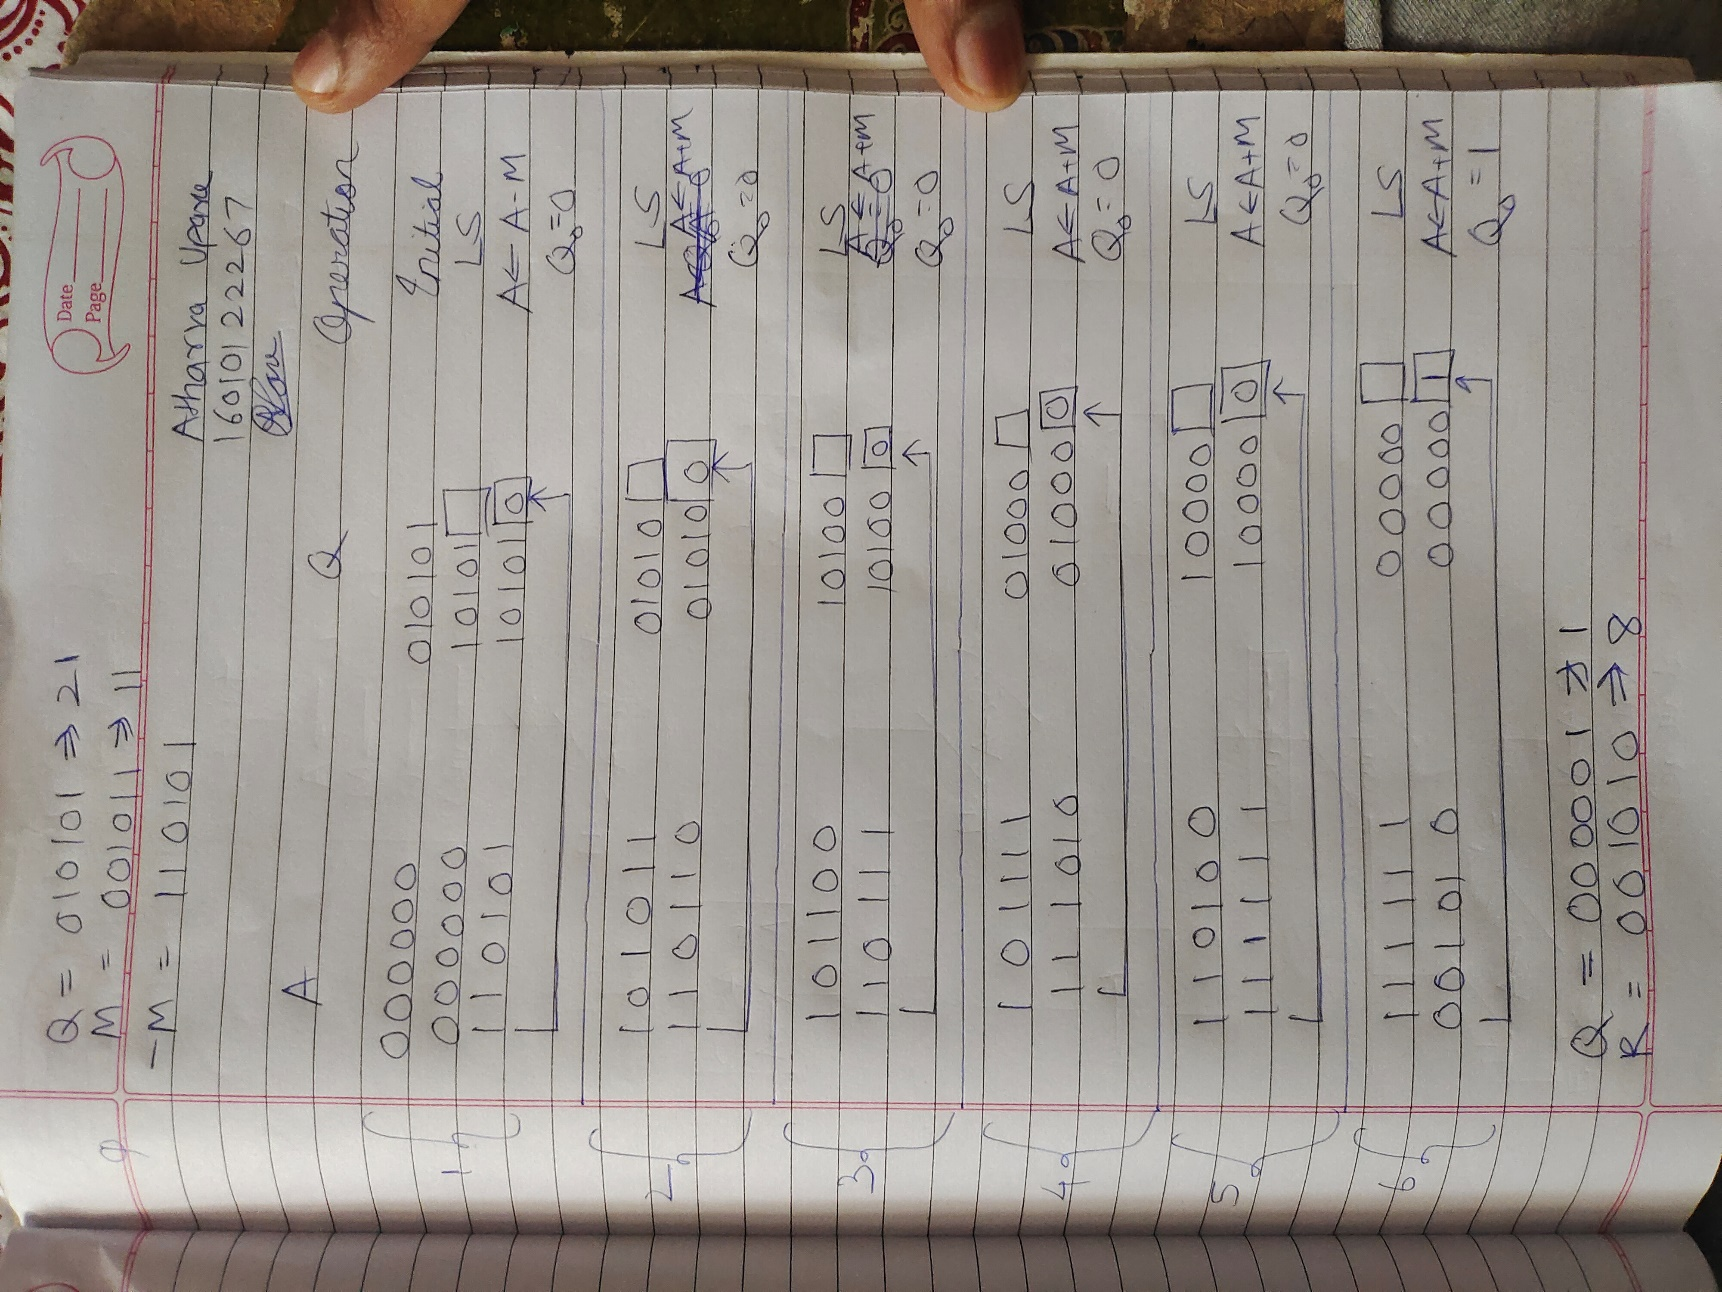 Date
Page
Q = 010101 ⇒ 21
M = 001011 ⇒ 11
-M = 110101
Atharva
16010122267
A Q Operation
000000 010101 Initial
000000 10101 LS
110101 10101 0 A ← A - M
Q₀ = 0
101011 01010 LS
110110 01010 0 A ← A+M
Q₀ = 0
101100 10100 LS
110111 10100 0 A ← A+M
Q₀ = 0
101111 01000 LS
111010 01000 0 A ← A+M
Q₀ = 0
110100 10000 LS
111111 10000 0 A ← A+M
Q₀ = 0
111111 00000 LS
001010 00000 1 A ← A+M
Q₀ = 1
Q = 000001 ⇒ 1
R = 001010 ⇒ 8
1.
2.
3.
4.
5.
6.